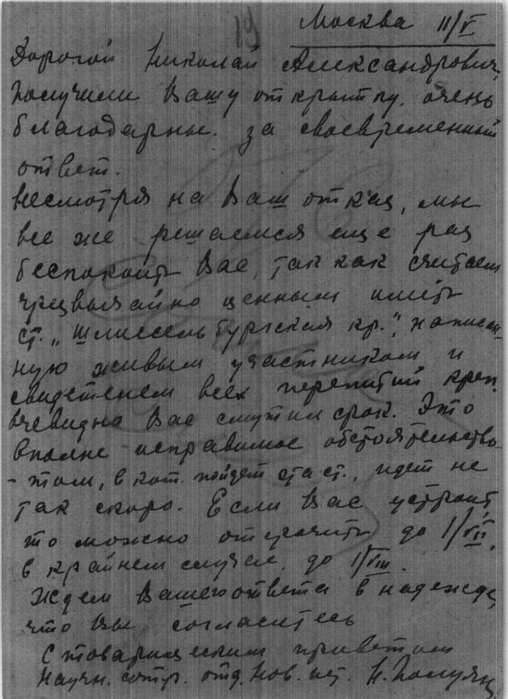 19
Москва 11/V
Дорогой Николай Александрович,
Получили Вашу открытку. очень
благодарны за своевременный
ответ.
Несмотря на Ваш отказ, мы
все же решаемся еще раз
беспокоить Вас, так как считаем
чрезвычайно ценным иметь
ст. "Шлиссельбургская кр.", написан-
ную живым участником и
свидетелем всех перепитий креп.
Очевидно Вас смутил срок. Это
вполне исправимое обстоятельство
- том, в кот. пойдет эта ст., идет не
так скоро. Если Вас устроит,
то можно отсрочить до 1/VII,
в крайнем случае, до 1/VIII.
Ждем Вашего ответа в надежде,
что Вы согласитесь
С товарищеским приветом
Научн. сотр. отд. Нов. ист. Н.